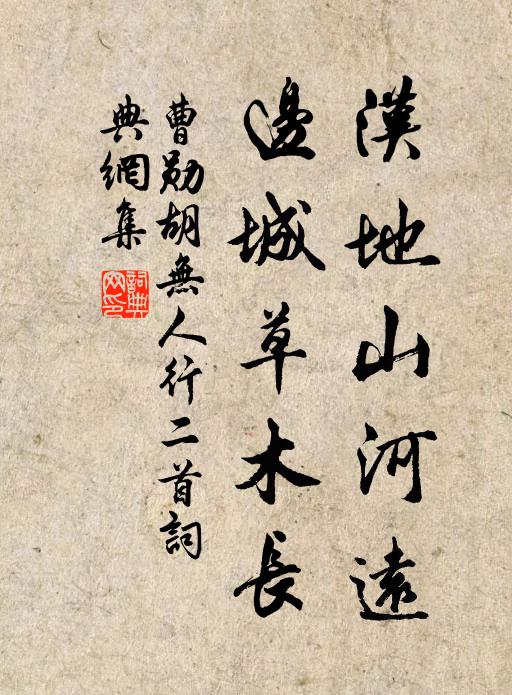 漢地山河遠
邊城草木長
曹勛胡無人行二首詞
典網集
詞典
网印